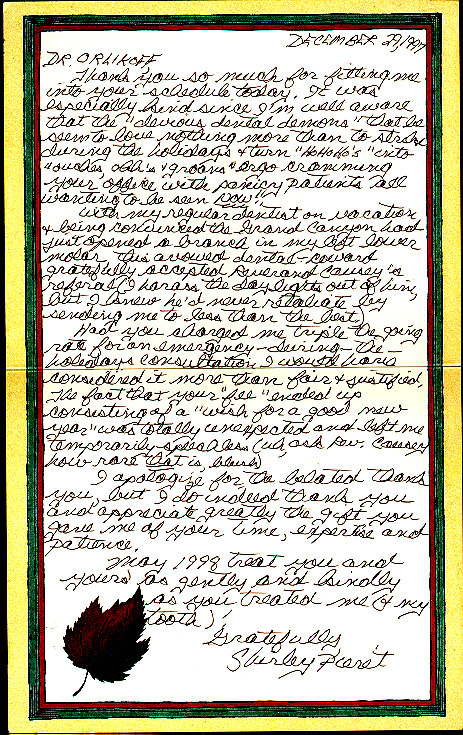 DECEMBER 29, 1997
DR. ORLIKOFF,
Thank you so much for fitting me
into your schedule today. It was
especially kind since I'm well aware
that the "devious dental demons" that be
seem to love nothing more than to strike
during the holidays & turn "HoHoHo's" into
"ouches, ohh's & groans" & ergo cramming
your office with panicy patients "all
wanting to be seen NOW!"
With my regular dentist on vacation
& being convinced the Grand Canyon had
just opened a branch in my left lower
molar, this avowed dental-coward
gratefully accepted Reverand Causey's
referal (I harass the daylights out of him,
but I knew he'd never retaliate by
sending me to less than the best)
Had you charged me triple the going
rate for an emergency-during-the
holidays consultation I would have
considered it more than fair & justified.
The fact that your "fee" ended up
consisting of a "wish for a good new
year" was totally unexpected and left me
temporarily speechless (uh, ask Rev. Causey
how rare that is, blush)
I apologize for the belated thank
you, but I do indeed thank you
and appreciate greatly the gift you
gave me of your time, expertise and
patience.
May 1998 treat you and
yours as gently and kindly
as you treated me (& my
tooth)!
Gratefully
Shirley